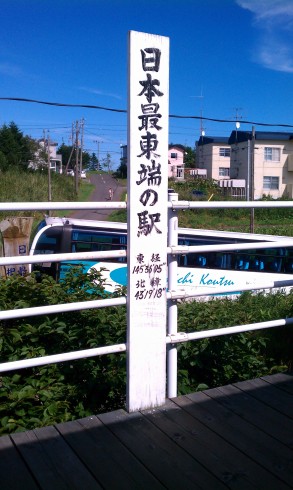 日本最東端の駅
東経
145°36'05"
北緯
43°19'18"
chi Koutsu